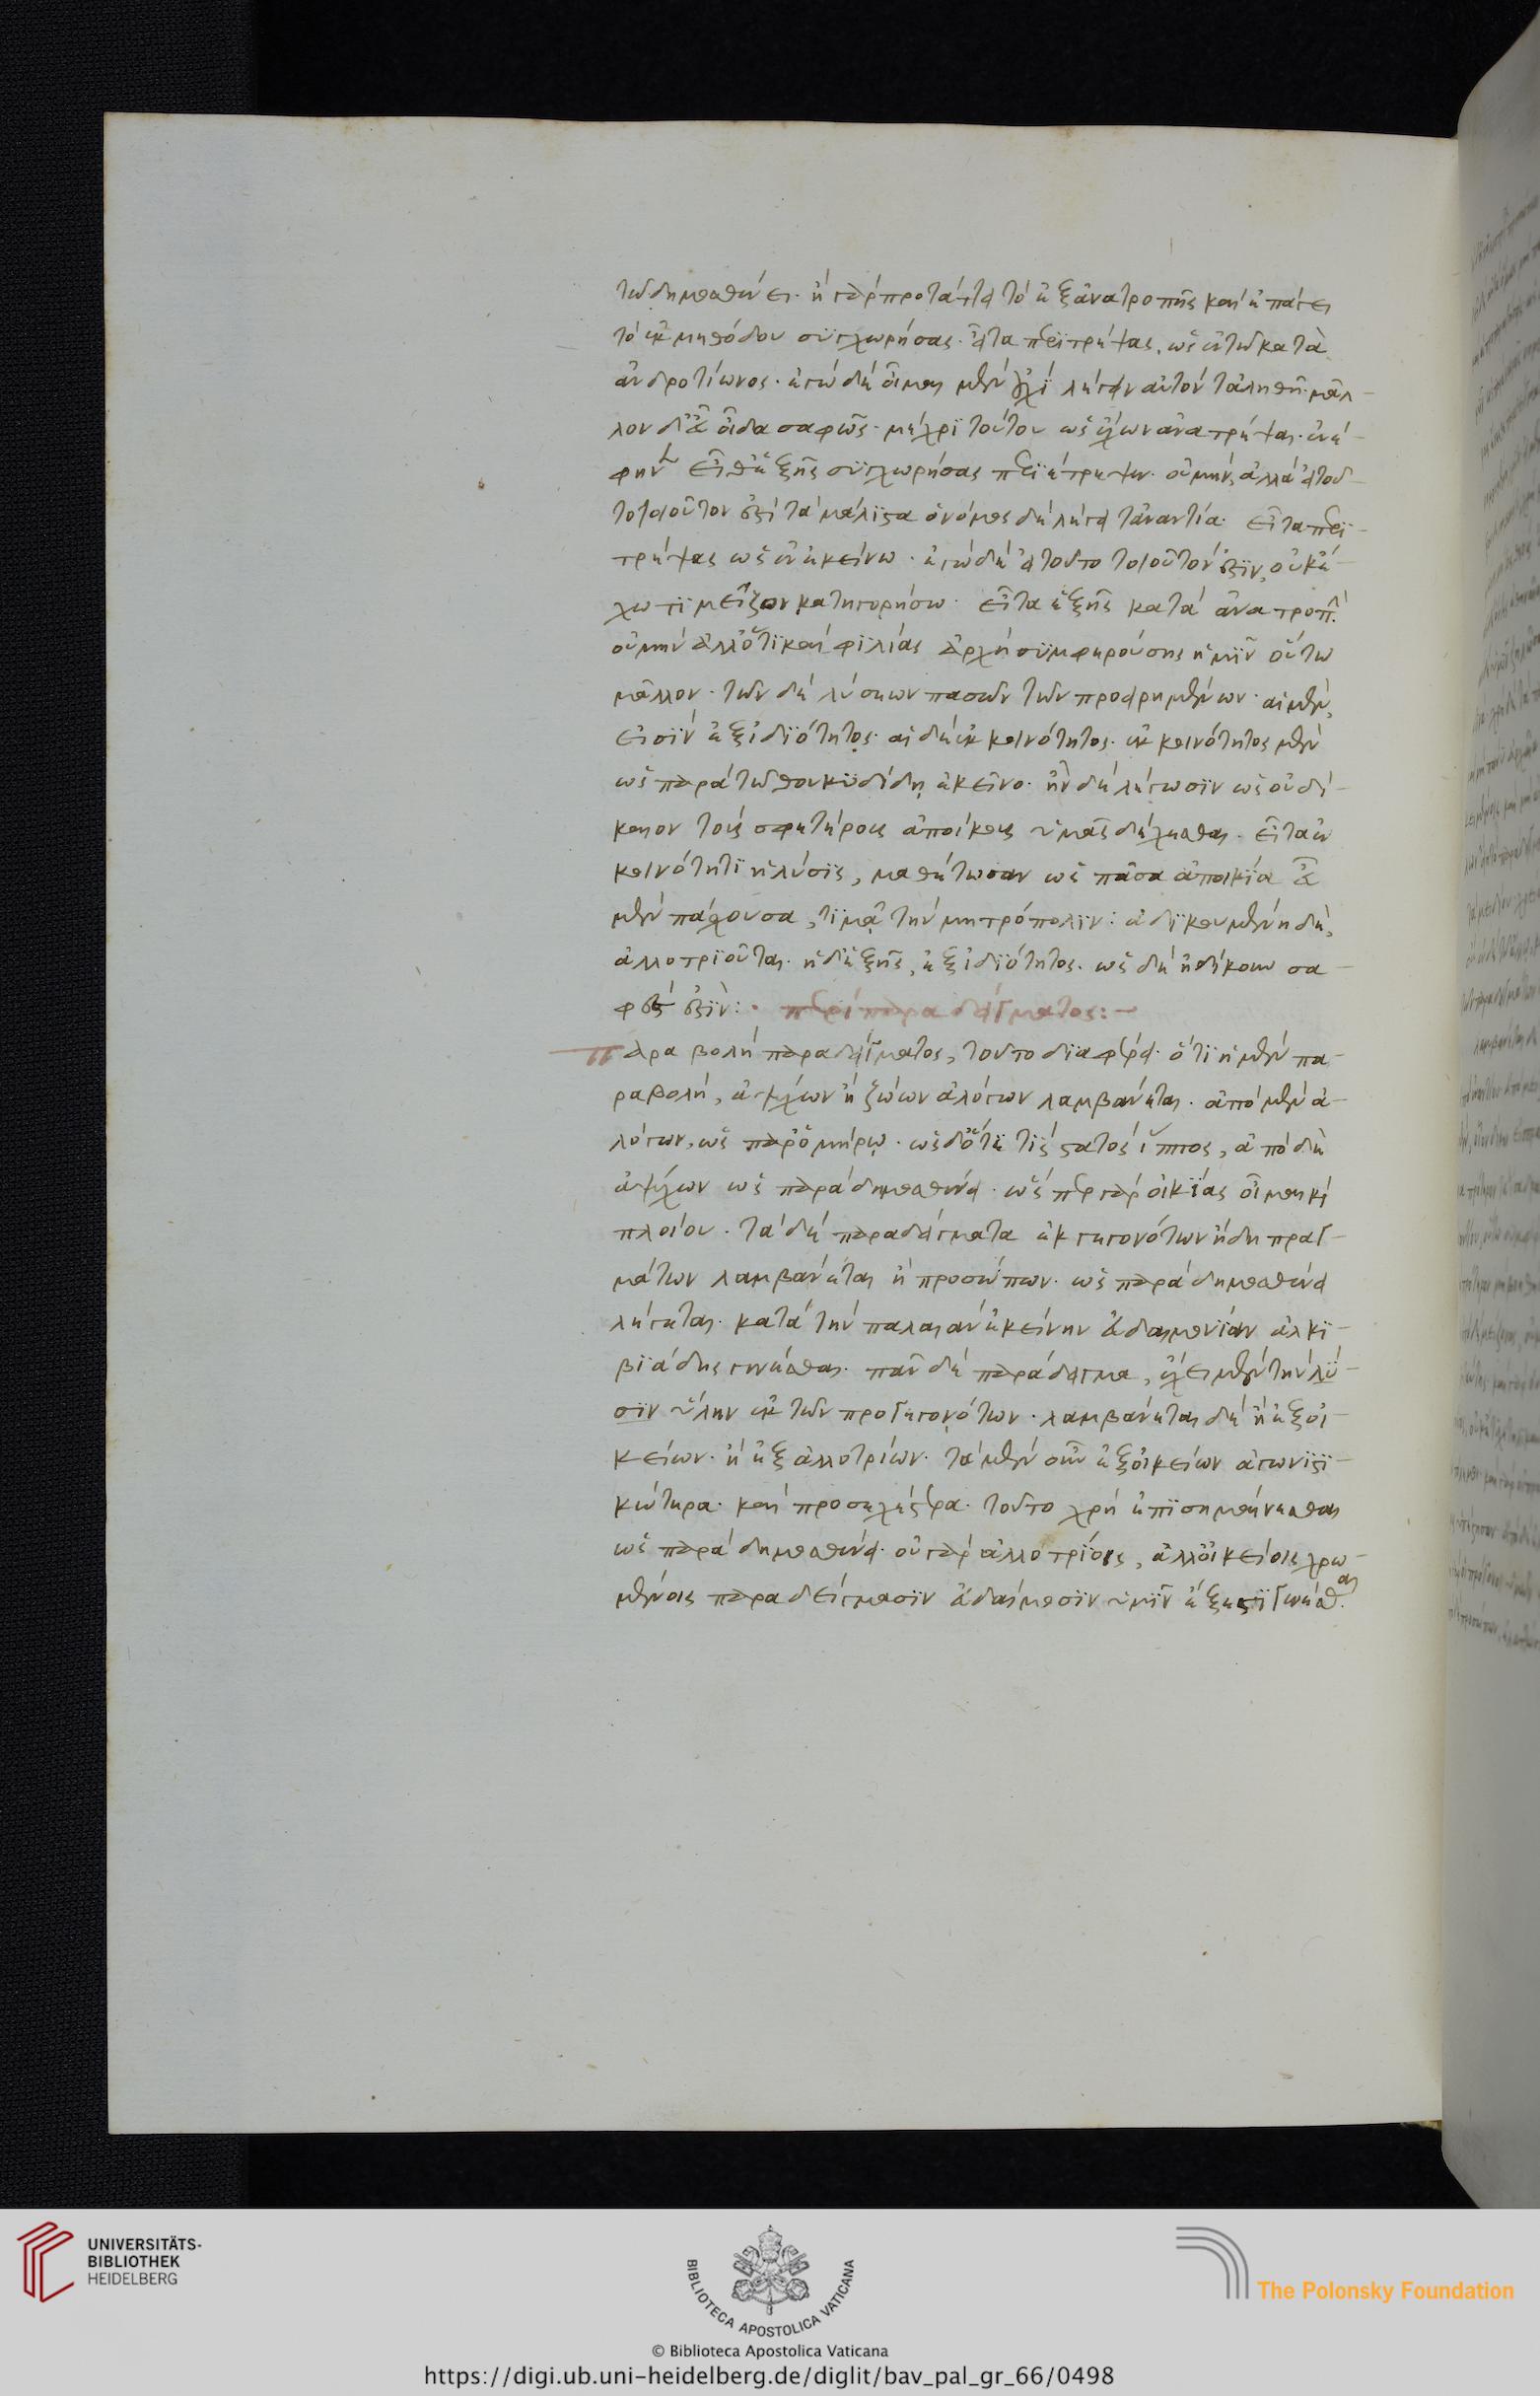 τῶ δημοσθένει. ἢ γὰρ προτάττει τὸ ἐξ ἀνατροπῆς καὶ ἐπάγει
τὸ ἐκ μεθόδου συγχωρήσας. εἶτα περιτρέψας, ὡς ἐν τῶ κατὰ
ἀνδροτίωνος. ἐγὼ δὲ οἶμαι μὲν οὐχὶ λέγειν αὐτὸν τἀληθῆ. μᾶλ-
λον δ' εὖ οἶδα σαφῶς. μέχρι τούτου ὡς ἔχων ἀνατρέψαι.
εἶθ' ἑξῆς συγχωρήσας περιέτρεψεν. οὐ μὴν ἀλλὰ εἰ τοῦ-
το τοιοῦτον ἐστὶ τὰ μάλιστα ὁ νόμος δὲ λέγει τἀναντία. εἶτα περι-
τρέψας ὡς ἐν ἐκείνω. ἐγὼ δὲ εἰ τοῦτο τοιοῦτόν ἐστιν, οὐκ ἔ-
χω τί μεῖζον κατηγορήσω. εἶτα ἑξῆς κατὰ ἀνατροπὴν
οὐ μὴν ἀλλ' ὅτι καὶ φιλίας ἀρχὴ συμφερούσης ἡμῖν οὕτω
μᾶλλον. τῶν δὲ λύσεων πασῶν τῶν προειρημένων. αἱ μὲν,
εἰσὶν ἐξ ἰδιότητος. αἱ δὲ ἐκ κοινότητος. ἐκ κοινότητος μὲν
ὡς παρὰ τῶ θουκυδίδη ἐκεῖνο. ἢν δὲ λέγωσιν ὡς οὐ δί-
καιον τοὺς σφετέρους ἀποίκους ὑμᾶς δέχεσθαι. εἶτα ἐν
κοινότητι ἡ λύσις, μαθέτωσαν ὡς πᾶσα ἀποικία εὖ
μὲν πάσχουσα, τιμᾷ τὴν μητρόπολιν: ἀδικουμένη δὲ,
ἀλλοτριοῦται. ἡ δ' ἑξῆς, ἐξ ἰδιότητος. ὡς δὲ ἠδίκουν σα-
φές ἐστιν: περὶ παραδείγματος:
παραβολὴ παραδείγματος, τοῦτο διαφέρει. ὅτι ἡ μὲν πα-
ραβολὴ, ἀψύχων ἢ ζώων ἀλόγων λαμβάνεται. ἀπὸ μὲν ἀ-
λόγων, ὡς παρ' ὁμήρῳ. ὡς δ' ὅτε τὶς στατὸς ἵππος, ἀπὸ δὲ
ἀψύχων ὡς παρὰ δημοσθένει. ὥσπερ γὰρ οἰκίας οἶμαι καὶ
πλοίου. τὰ δὲ παραδείγματα ἐκ γεγονότων ἤδη πραγ-
μάτων λαμβάνεται ἢ προσώπων. ὡς παρὰ δημοσθένει
λέγεται. κατὰ τὴν παλαιὰν ἐκείνην εὐδαιμονίαν ἀλκι-
βιάδης γενέσθαι. πᾶν δὲ παράδειγμα, ἔχει μὲν τὴν λύ-
σιν ὕλην ἐκ τῶν προγεγονότων. λαμβάνεται δὲ ἢ ἐξ οἰ-
κείων. ἢ ἐξ ἀλλοτρίων. τὰ μὲν οὖν ἐξ οἰκείων ἀγωνιστι-
κώτερα. καὶ προσεχέστερα. τοῦτο χρὴ ἐπισημαίνεσθαι
ὡς παρὰ δημοσθένει. οὐ γὰρ ἀλλοτρίοις, ἀλλ' οἰκείοις χρω-
μένοις παραδείγμασιν εὐδαίμοσιν ὑμῖν ἔξεστι γενέσθαι.
UNIVERSITÄTS-
BIBLIOTHEK
HEIDELBERG
BIBLIOTECA APOSTOLICA VATICANA
The Polonsky Foundation
© Biblioteca Apostolica Vaticana
https://digi.ub.uni-heidelberg.de/diglit/bav_pal_gr_66/0498